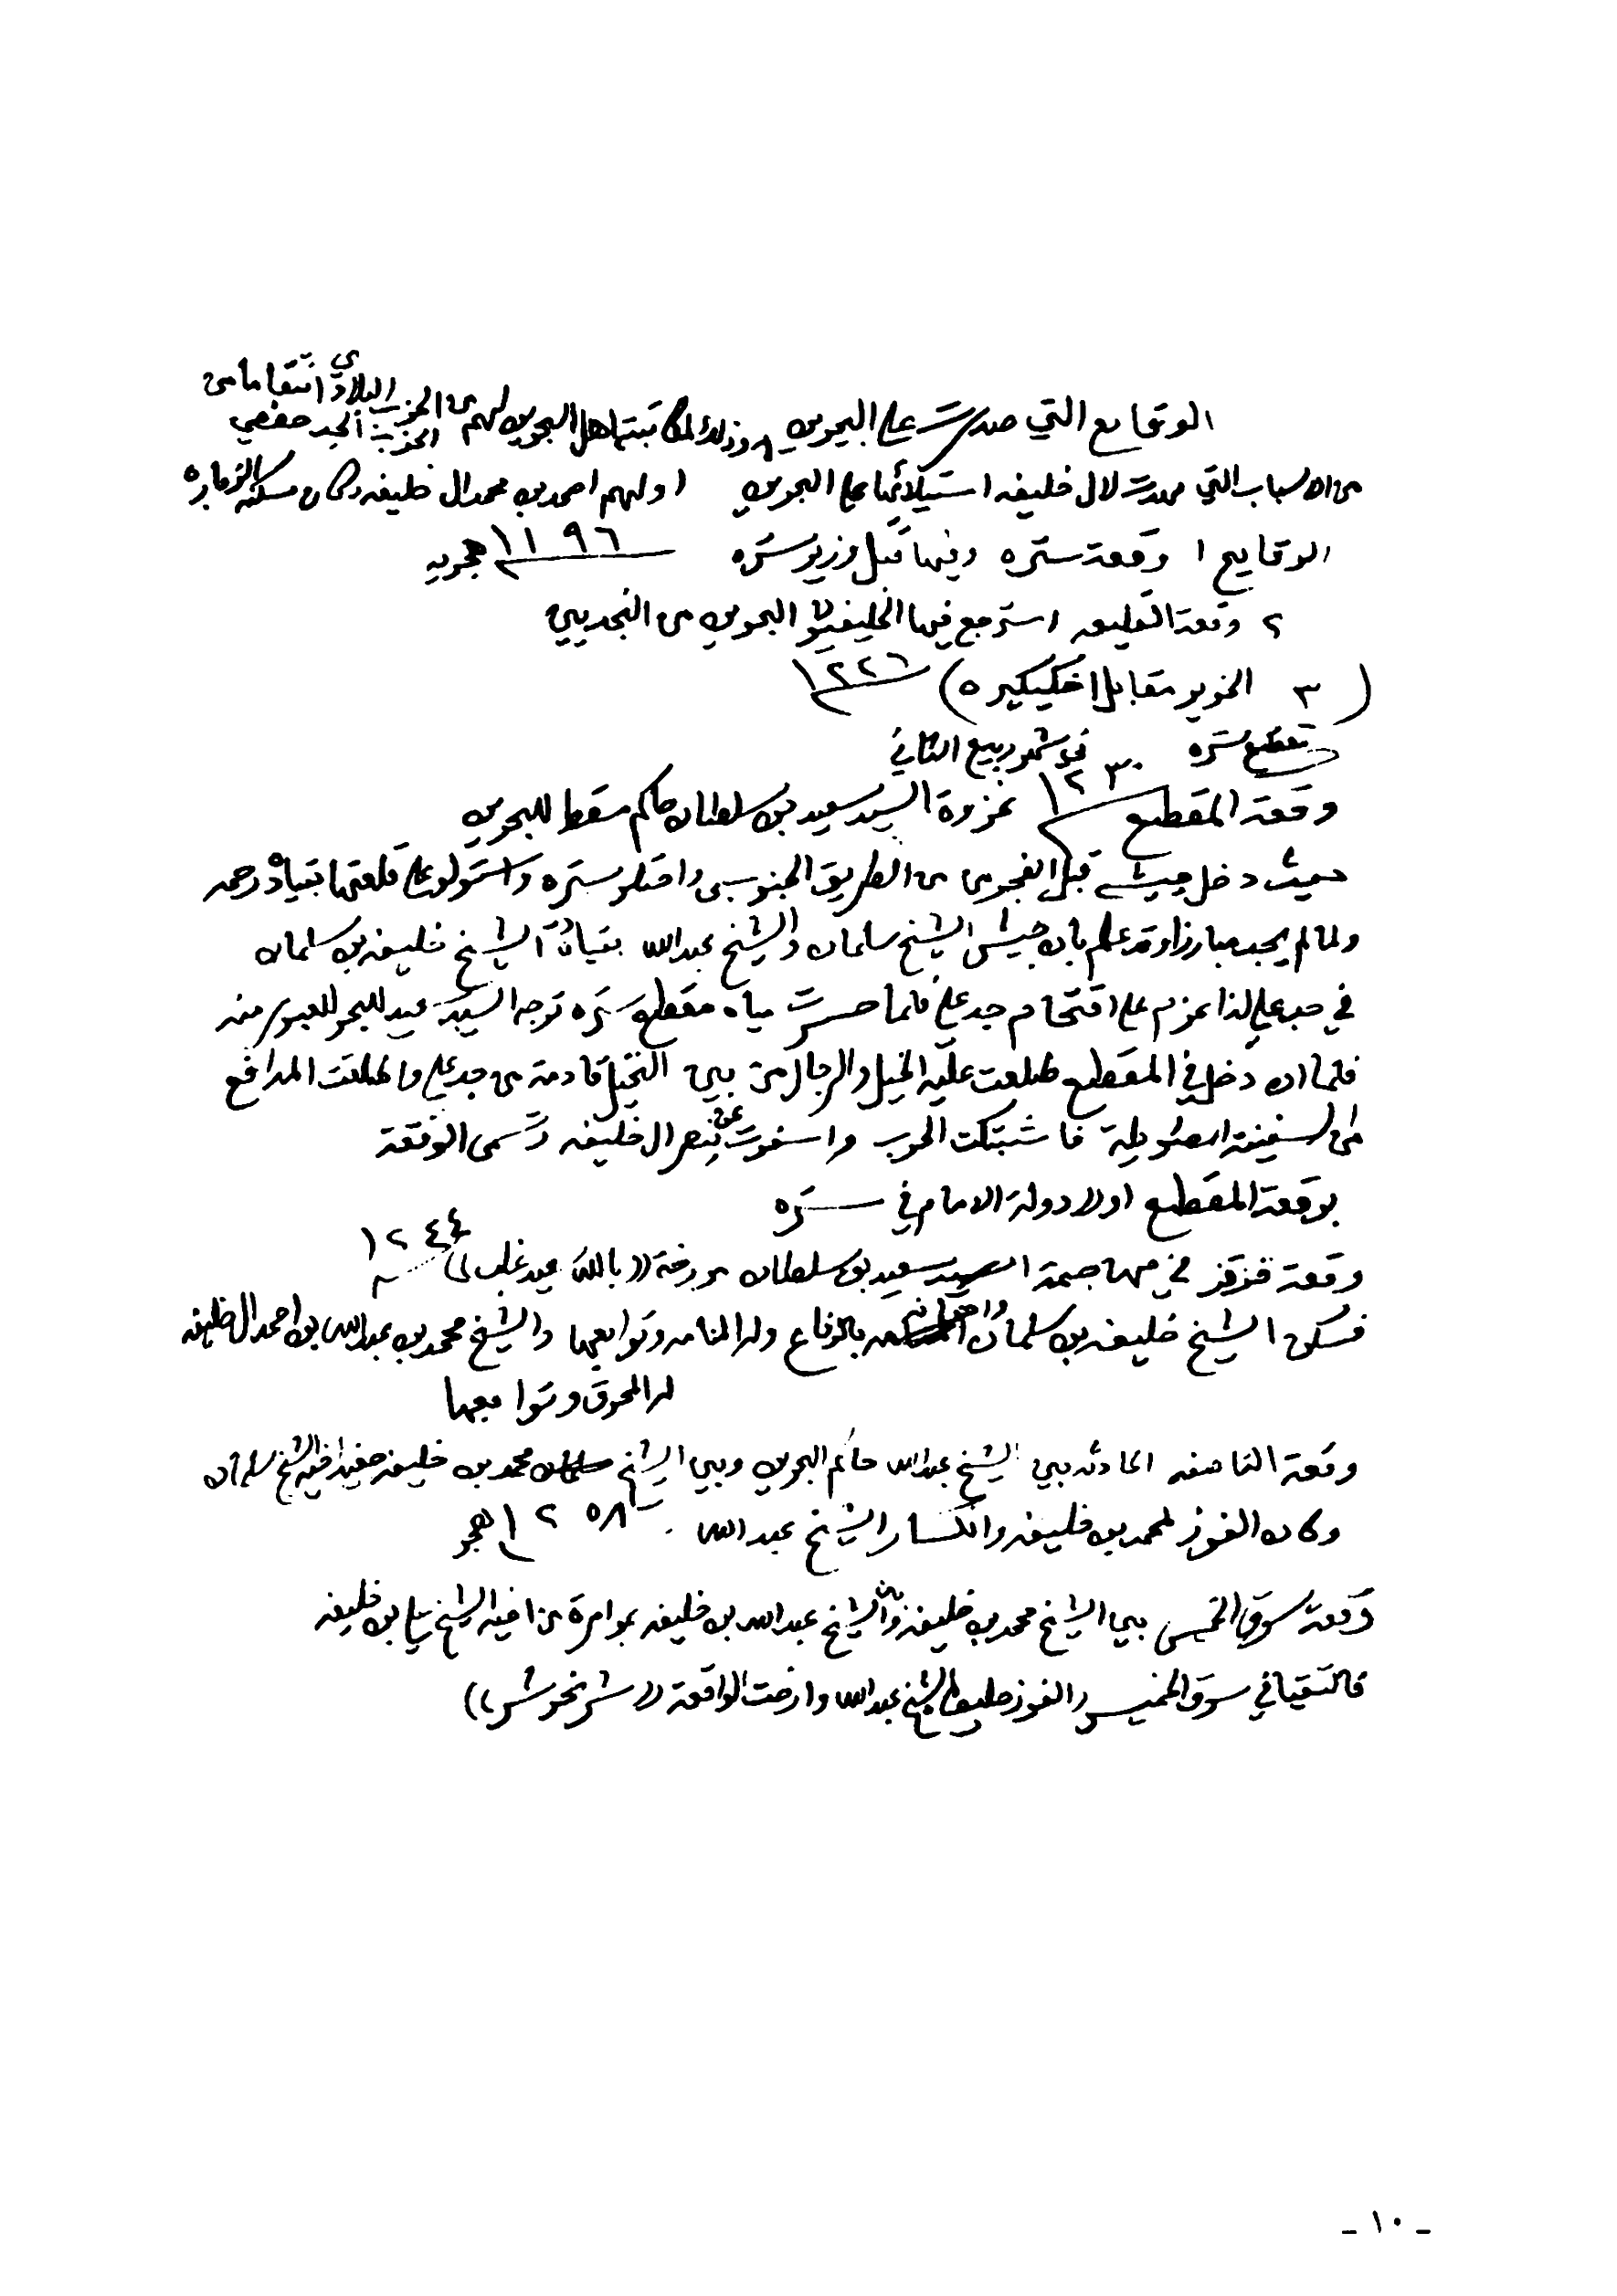 الوقايع التي صدرت على البحرين وذلك لمكاتبت اهل البحرين لهم من الحزب البلادي انتقاما من
الحزب الجد حفصي
من الاسباب التي مهدت لال خليفه استيلائها على البحرين اولهم احمد بن محمد ال خليفه وكان مسكنه الزباره
الوقايع ١ وقعة ستره وفيها قتل وزير ستره ١١٩٦ هجريه
٢ وقعة القليعه استرجع فيها الخليفيون البحرين من النجديين
( ٣ الخوير مقابل اخكيكيره ) ١٢٢٦
مقطع ستره في شهر ربيع الثاني
وقعة المقطع ١٢٣٠ غزوة السيد سعيد بن سلطان حاكم مسقط للبحرين
حيث دخل جيشه قبل الفجر من الطريق الجنوبي واحتلو ستره واستولو على قلعتها بقيادة رحمه
ولما لم يجد مبارزا وقد علم بان جيش الشيخ سلمان والشيخ عبدالله بقيادة الشيخ خليفه بن سلمان
في جدعلي لذا عزم على اقتحام جدعلي فلما حسرت مياه مقطع ستره توجه السيد سعيد للبحر للعبور منه
فلما ان دخل في المقطع طلعت عليه الخيل والرجال من بين النخيل قادمة من جدعلي واطلقت المدافع
من السفينة فاشتبكت الحرب واسفرت عن نصر ال خليفه وسمى الوقعة
بوقعة المقطع اولاد دولة الامام في ستره
وقعة قزقز في مهاجمة السيد سعيد بن سلطان مورخة (( بالله عيد غلب )) ١٢٤٤
فسكن الشيخ خليفه بن سلمان واخوانه بالرفاع وله المنامه وتوابعها والشيخ محمد بن عبدالله بن احمد ال خليفه
له المحرق وتوابعها
وقعة الناصفه الحادثه بين الشيخ عبدالله حاكم البحرين وبين الشيخ محمد بن خليفه حفيد اخيه الشيخ سلمان
وكان الفوز لمحمد بن خليفه وانكسار الشيخ عبدالله ١٢٥٨ هجر
وقعة سوق الخميس بين الشيخ محمد بن خليفه وبين الشيخ عبدالله بن خليفه بموامرة من اخيه الشيخ علي بن خليفه
فالتقيا في سوق الخميس والفوز حليف الشيخ عبدالله وارخت الواقعة (( شر نحو شر ))
- ١٠ -